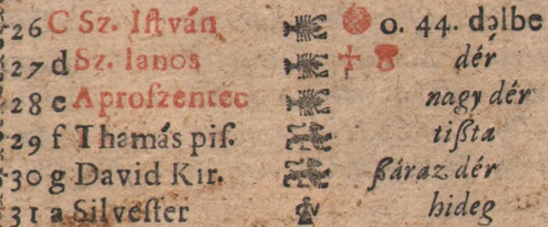 26 C Sz. Iſtván 0. 44. dəlbe
27 d Sz. Ianos dér
28 e Aproſzentec nagy dér
29 f Thamás piſ. tißta
30 g David Kır. ßáraz dér
31 a Silveſter hideg